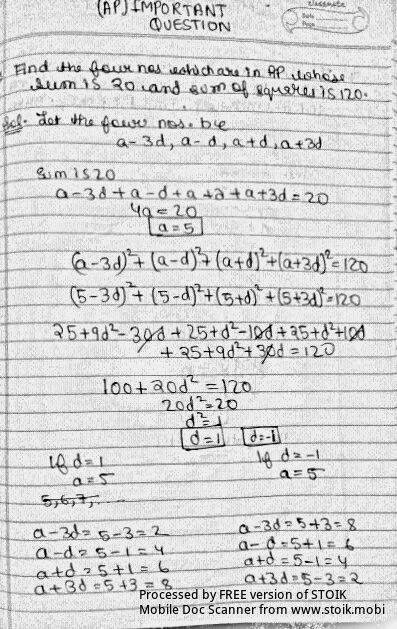 (AP) IMPORTANT
QUESTION
classmate
Date
Page
Find the four nos which are in AP whose
sum is 20 and sum of squares is 120.
Sol. Let the four nos. be
a-3d, a-d, a+d, a+3d
Sum is 20
a-3d+a-d+a+d+a+3d=20
4a=20
a=5
(a-3d)²+(a-d)²+(a+d)²+(a+3d)²=120
(5-3d)²+(5-d)²+(5+d)²+(5+3d)²=120
25+9d²-30d+25+d²-10d+25+d²+10d
+25+9d²+30d=120
100+20d²=120
20d²=20
d²=1
d=1 d=-1
If d=1
a=5
5,6,7,....
a-3d=5-3=2
a-d=5-1=4
a+d=5+1=6
a+3d=5+3=8
If d=-1
a=5
a-3d=5+3=8
a-d=5+1=6
a+d=5-1=4
a+3d=5-3=2
Processed by FREE version of STOIK
Mobile Doc Scanner from www.stoik.mobi